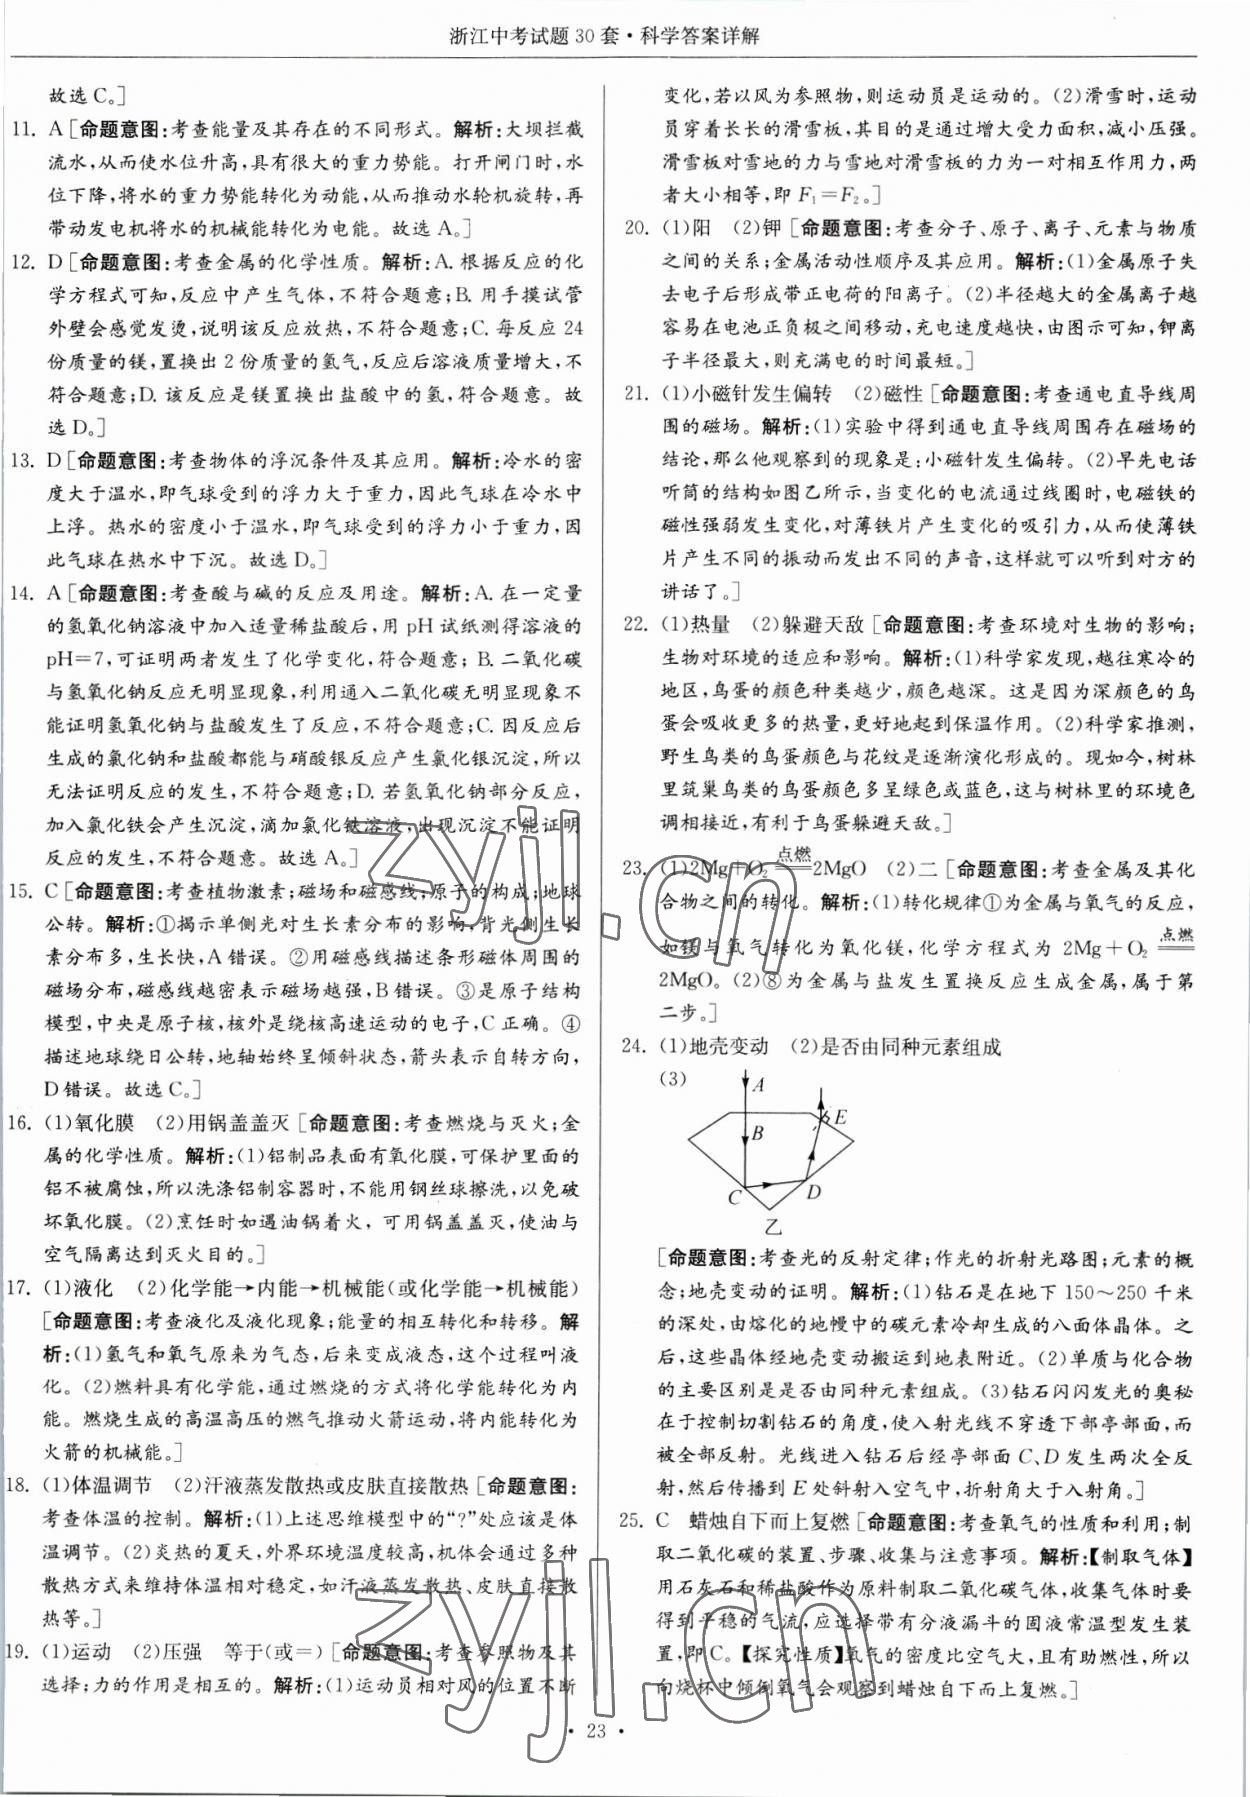 浙江中考试题30套·科学答案详解
故选C。]
11. A [命题意图:考查能量及其存在的不同形式。解析:大坝拦截
流水,从而使水位升高,具有很大的重力势能。打开闸门时,水
位下降,将水的重力势能转化为动能,从而推动水轮机旋转,再
带动发电机将水的机械能转化为电能。故选A。]
12. D [命题意图:考查金属的化学性质。解析:A. 根据反应的化
学方程式可知,反应中产生气体,不符合题意;B. 用手摸试管
外壁会感觉发烫,说明该反应放热,不符合题意;C. 每反应24
份质量的镁,置换出2份质量的氢气,反应后溶液质量增大,不
符合题意;D. 该反应是镁置换出盐酸中的氢,符合题意。故
选D。]
13. D [命题意图:考查物体的浮沉条件及其应用。解析:冷水的密
度大于温水,即气球受到的浮力大于重力,因此气球在冷水中
上浮。热水的密度小于温水,即气球受到的浮力小于重力,因
此气球在热水中下沉。故选D。]
14. A [命题意图:考查酸与碱的反应及用途。解析:A. 在一定量
的氢氧化钠溶液中加入适量稀盐酸后,用pH试纸测得溶液的
pH=7,可证明两者发生了化学变化,符合题意;B. 二氧化碳
与氢氧化钠反应无明显现象,利用通入二氧化碳无明显现象不
能证明氢氧化钠与盐酸发生了反应,不符合题意;C. 因反应后
生成的氯化钠和盐酸都能与硝酸银反应产生氯化银沉淀,所以
无法证明反应的发生,不符合题意;D. 若氢氧化钠部分反应,
加入氯化铁会产生沉淀,滴加氯化铁溶液,出现沉淀不能证明
反应的发生,不符合题意。故选A。]
15. C [命题意图:考查植物激素;磁场和磁感线;原子的构成;地球
公转。解析:①揭示单侧光对生长素分布的影响,背光侧生长
素分布多,生长快,A错误。②用磁感线描述条形磁体周围的
磁场分布,磁感线越密表示磁场越强,B错误。③是原子结构
模型,中央是原子核,核外是绕核高速运动的电子,C正确。④
描述地球绕日公转,地轴始终呈倾斜状态,箭头表示自转方向,
D错误。故选C。]
16. (1)氧化膜 (2)用锅盖盖灭 [命题意图:考查燃烧与灭火;金
属的化学性质。解析:(1)铝制品表面有氧化膜,可保护里面的
铝不被腐蚀,所以洗涤铝制容器时,不能用钢丝球擦洗,以免破
坏氧化膜。(2)烹饪时如遇油锅着火,可用锅盖盖灭,使油与
空气隔离达到灭火目的。]
17. (1)液化 (2)化学能→内能→机械能(或化学能→机械能)
[命题意图:考查液化及液化现象;能量的相互转化和转移。解
析:(1)氢气和氧气原来为气态,后来变成液态,这个过程叫液
化。(2)燃料具有化学能,通过燃烧的方式将化学能转化为内
能。燃烧生成的高温高压的燃气推动火箭运动,将内能转化为
火箭的机械能。]
18. (1)体温调节 (2)汗液蒸发散热或皮肤直接散热 [命题意图:
考查体温的控制。解析:(1)上述思维模型中的“?”处应该是体
温调节。(2)炎热的夏天,外界环境温度较高,机体会通过多种
散热方式来维持体温相对稳定,如汗液蒸发散热、皮肤直接散
热等。]
19. (1)运动 (2)压强 等于(或=) [命题意图:考查参照物及其
选择;力的作用是相互的。解析:(1)运动员相对风的位置不断
变化,若以风为参照物,则运动员是运动的。(2)滑雪时,运动
员穿着长长的滑雪板,其目的是通过增大受力面积,减小压强。
滑雪板对雪地的力与雪地对滑雪板的力为一对相互作用力,两
者大小相等,即F₁=F₂。]
20. (1)阳 (2)钾 [命题意图:考查分子、原子、离子、元素与物质
之间的关系;金属活动性顺序及其应用。解析:(1)金属原子失
去电子后形成带正电荷的阳离子。(2)半径越大的金属离子越
容易在电池正负极之间移动,充电速度越快,由图示可知,钾离
子半径最大,则充满电的时间最短。]
21. (1)小磁针发生偏转 (2)磁性 [命题意图:考查通电直导线周
围的磁场。解析:(1)实验中得到通电直导线周围存在磁场的
结论,那么他观察到的现象是:小磁针发生偏转。(2)早先电话
听筒的结构如图乙所示,当变化的电流通过线圈时,电磁铁的
磁性强弱发生变化,对薄铁片产生变化的吸引力,从而使薄铁
片产生不同的振动而发出不同的声音,这样就可以听到对方的
讲话了。]
22. (1)热量 (2)躲避天敌 [命题意图:考查环境对生物的影响;
生物对环境的适应和影响。解析:(1)科学家发现,越往寒冷的
地区,鸟蛋的颜色种类越少,颜色越深。这是因为深颜色的鸟
蛋会吸收更多的热量,更好地起到保温作用。(2)科学家推测,
野生鸟类的鸟蛋颜色与花纹是逐渐演化形成的。现如今,树林
里筑巢鸟类的鸟蛋颜色多呈绿色或蓝色,这与树林里的环境色
调相接近,有利于鸟蛋躲避天敌。]
23. (1)2Mg+O₂ 点燃 2MgO (2)二 [命题意图:考查金属及其化
合物之间的转化。解析:(1)转化规律①为金属与氧气的反应,
如镁与氧气转化为氧化镁,化学方程式为 2Mg+O₂ 点燃
2MgO。(2)⑧为金属与盐发生置换反应生成金属,属于第
二步。]
24. (1)地壳变动 (2)是否由同种元素组成
(3)
A
B
C
D
E
乙
[命题意图:考查光的反射定律;作光的折射光路图;元素的概
念;地壳变动的证明。解析:(1)钻石是在地下150~250千米
的深处,由熔化的地幔中的碳元素冷却生成的八面体晶体。之
后,这些晶体经地壳变动搬运到地表附近。(2)单质与化合物
的主要区别是是否由同种元素组成。(3)钻石闪闪发光的奥秘
在于控制切割钻石的角度,使入射光线不穿透下部亭部面,而
被全部反射。光线进入钻石后经亭部面C、D发生两次全反
射,然后传播到E处斜射入空气中,折射角大于入射角。]
25. C 蜡烛自下而上复燃 [命题意图:考查氧气的性质和利用;制
取二氧化碳的装置、步骤、收集与注意事项。解析:【制取气体】
用石灰石和稀盐酸作为原料制取二氧化碳气体,收集气体时要
得到平稳的气流,应选择带有分液漏斗的固液常温型发生装
置,即C。【探究性质】氧气的密度比空气大,且有助燃性,所以
向烧杯中倾倒氧气会观察到蜡烛自下而上复燃。]
zyjl.cn
zyjl.cn
• 23 •